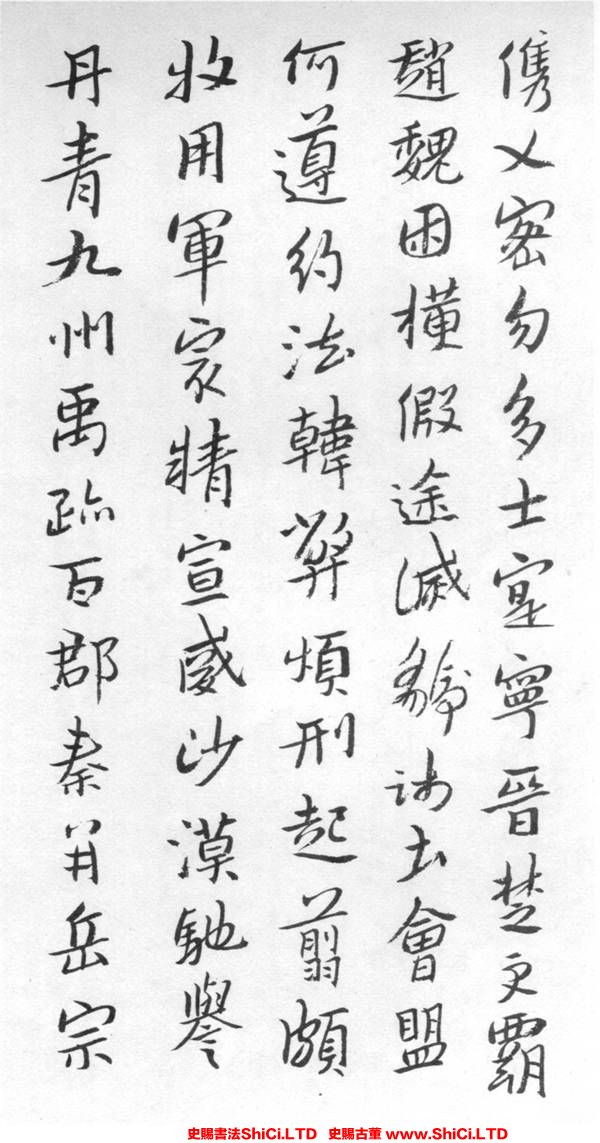 儁乂密勿多士寔寧晉楚更霸
趙魏困橫假途滅虢踐土會盟
何遵約法韓弊煩刑起翦頗
牧用軍宼精宣威沙漠馳譽
丹青九州禹跡百郡秦并岳宗
史賜書法ShiCi.LTD 史賜古董 www.ShiCi.LTD